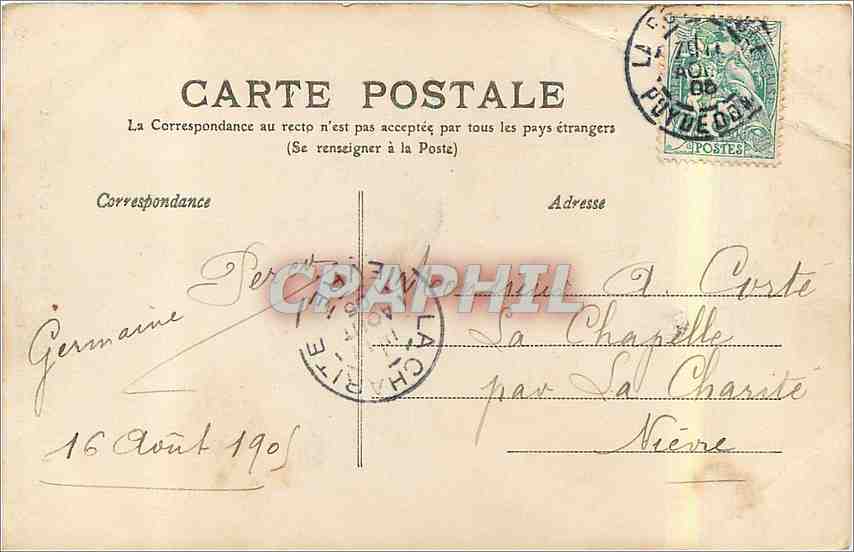 CARTE POSTALE
La Correspondance au recto n'est pas acceptée par tous les pays étrangers
(Se renseigner à la Poste)
Correspondance
Adresse
POSTES
AOUT
05
PUY DE DOM
CPAPHIL
LA CHARITE
Germaine
Monsieur A. Corté
La Chapelle
par La Charité
Nièvre
16 Août 1905